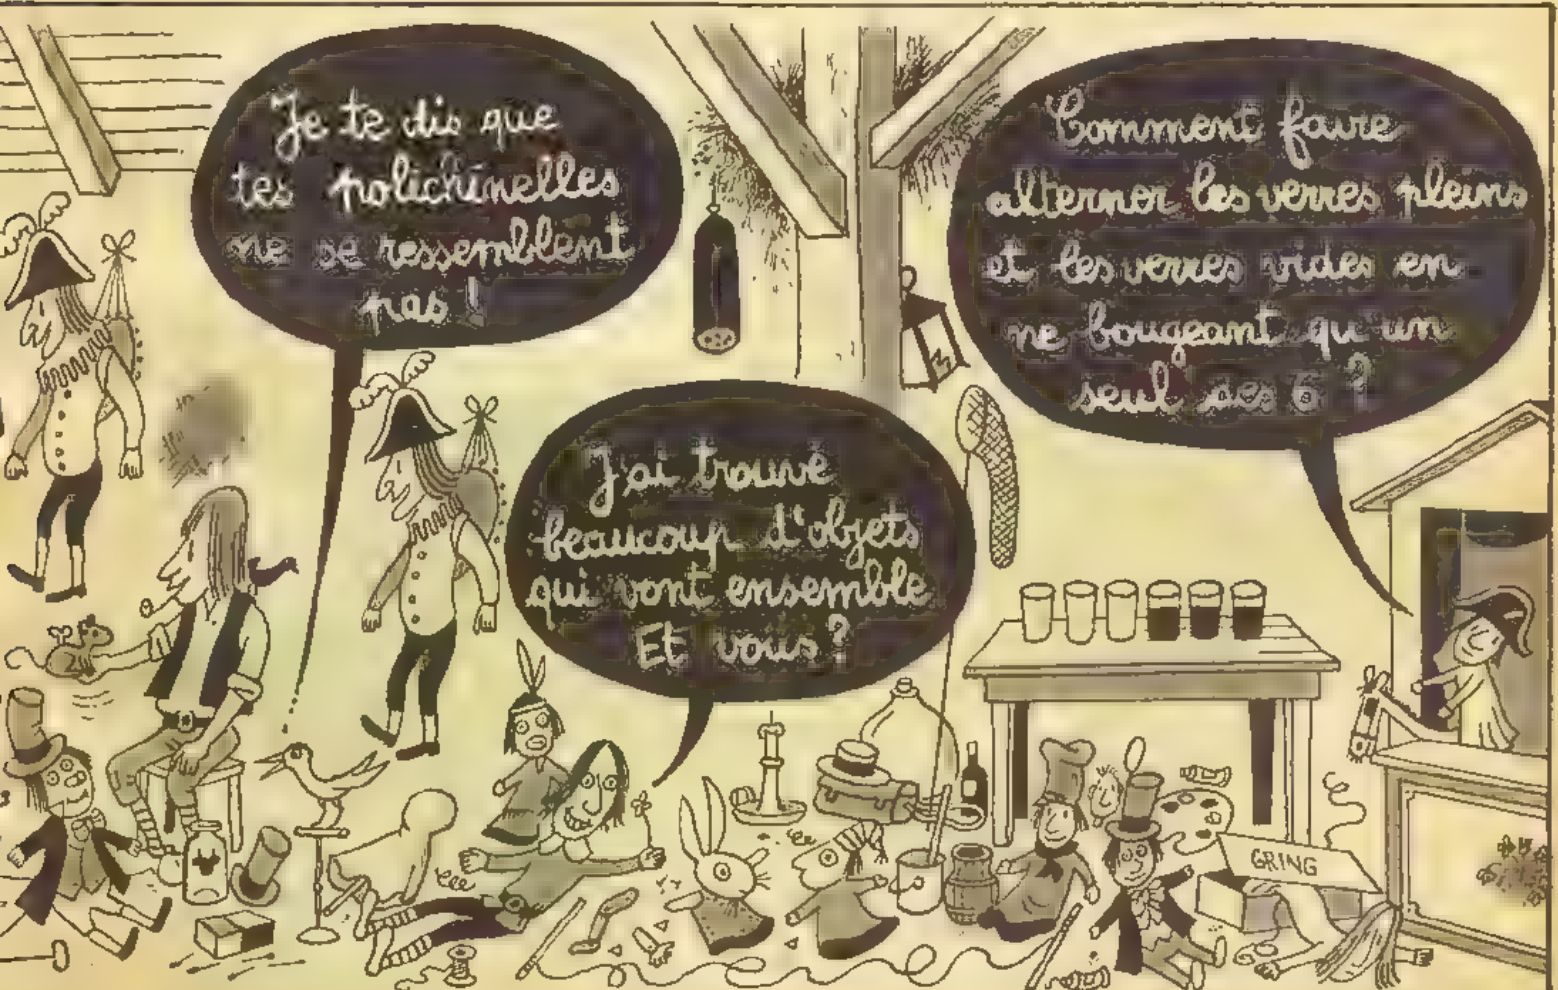 Je te dis que
tes polichinelles
ne se ressemblent
pas !
J'ai trouvé
beaucoup d'objets
qui vont ensemble
Et vous ?
Comment faire
alterner les verres pleins
et les verres vides en
ne bougeant qu'un
seul des 6 ?
GRING